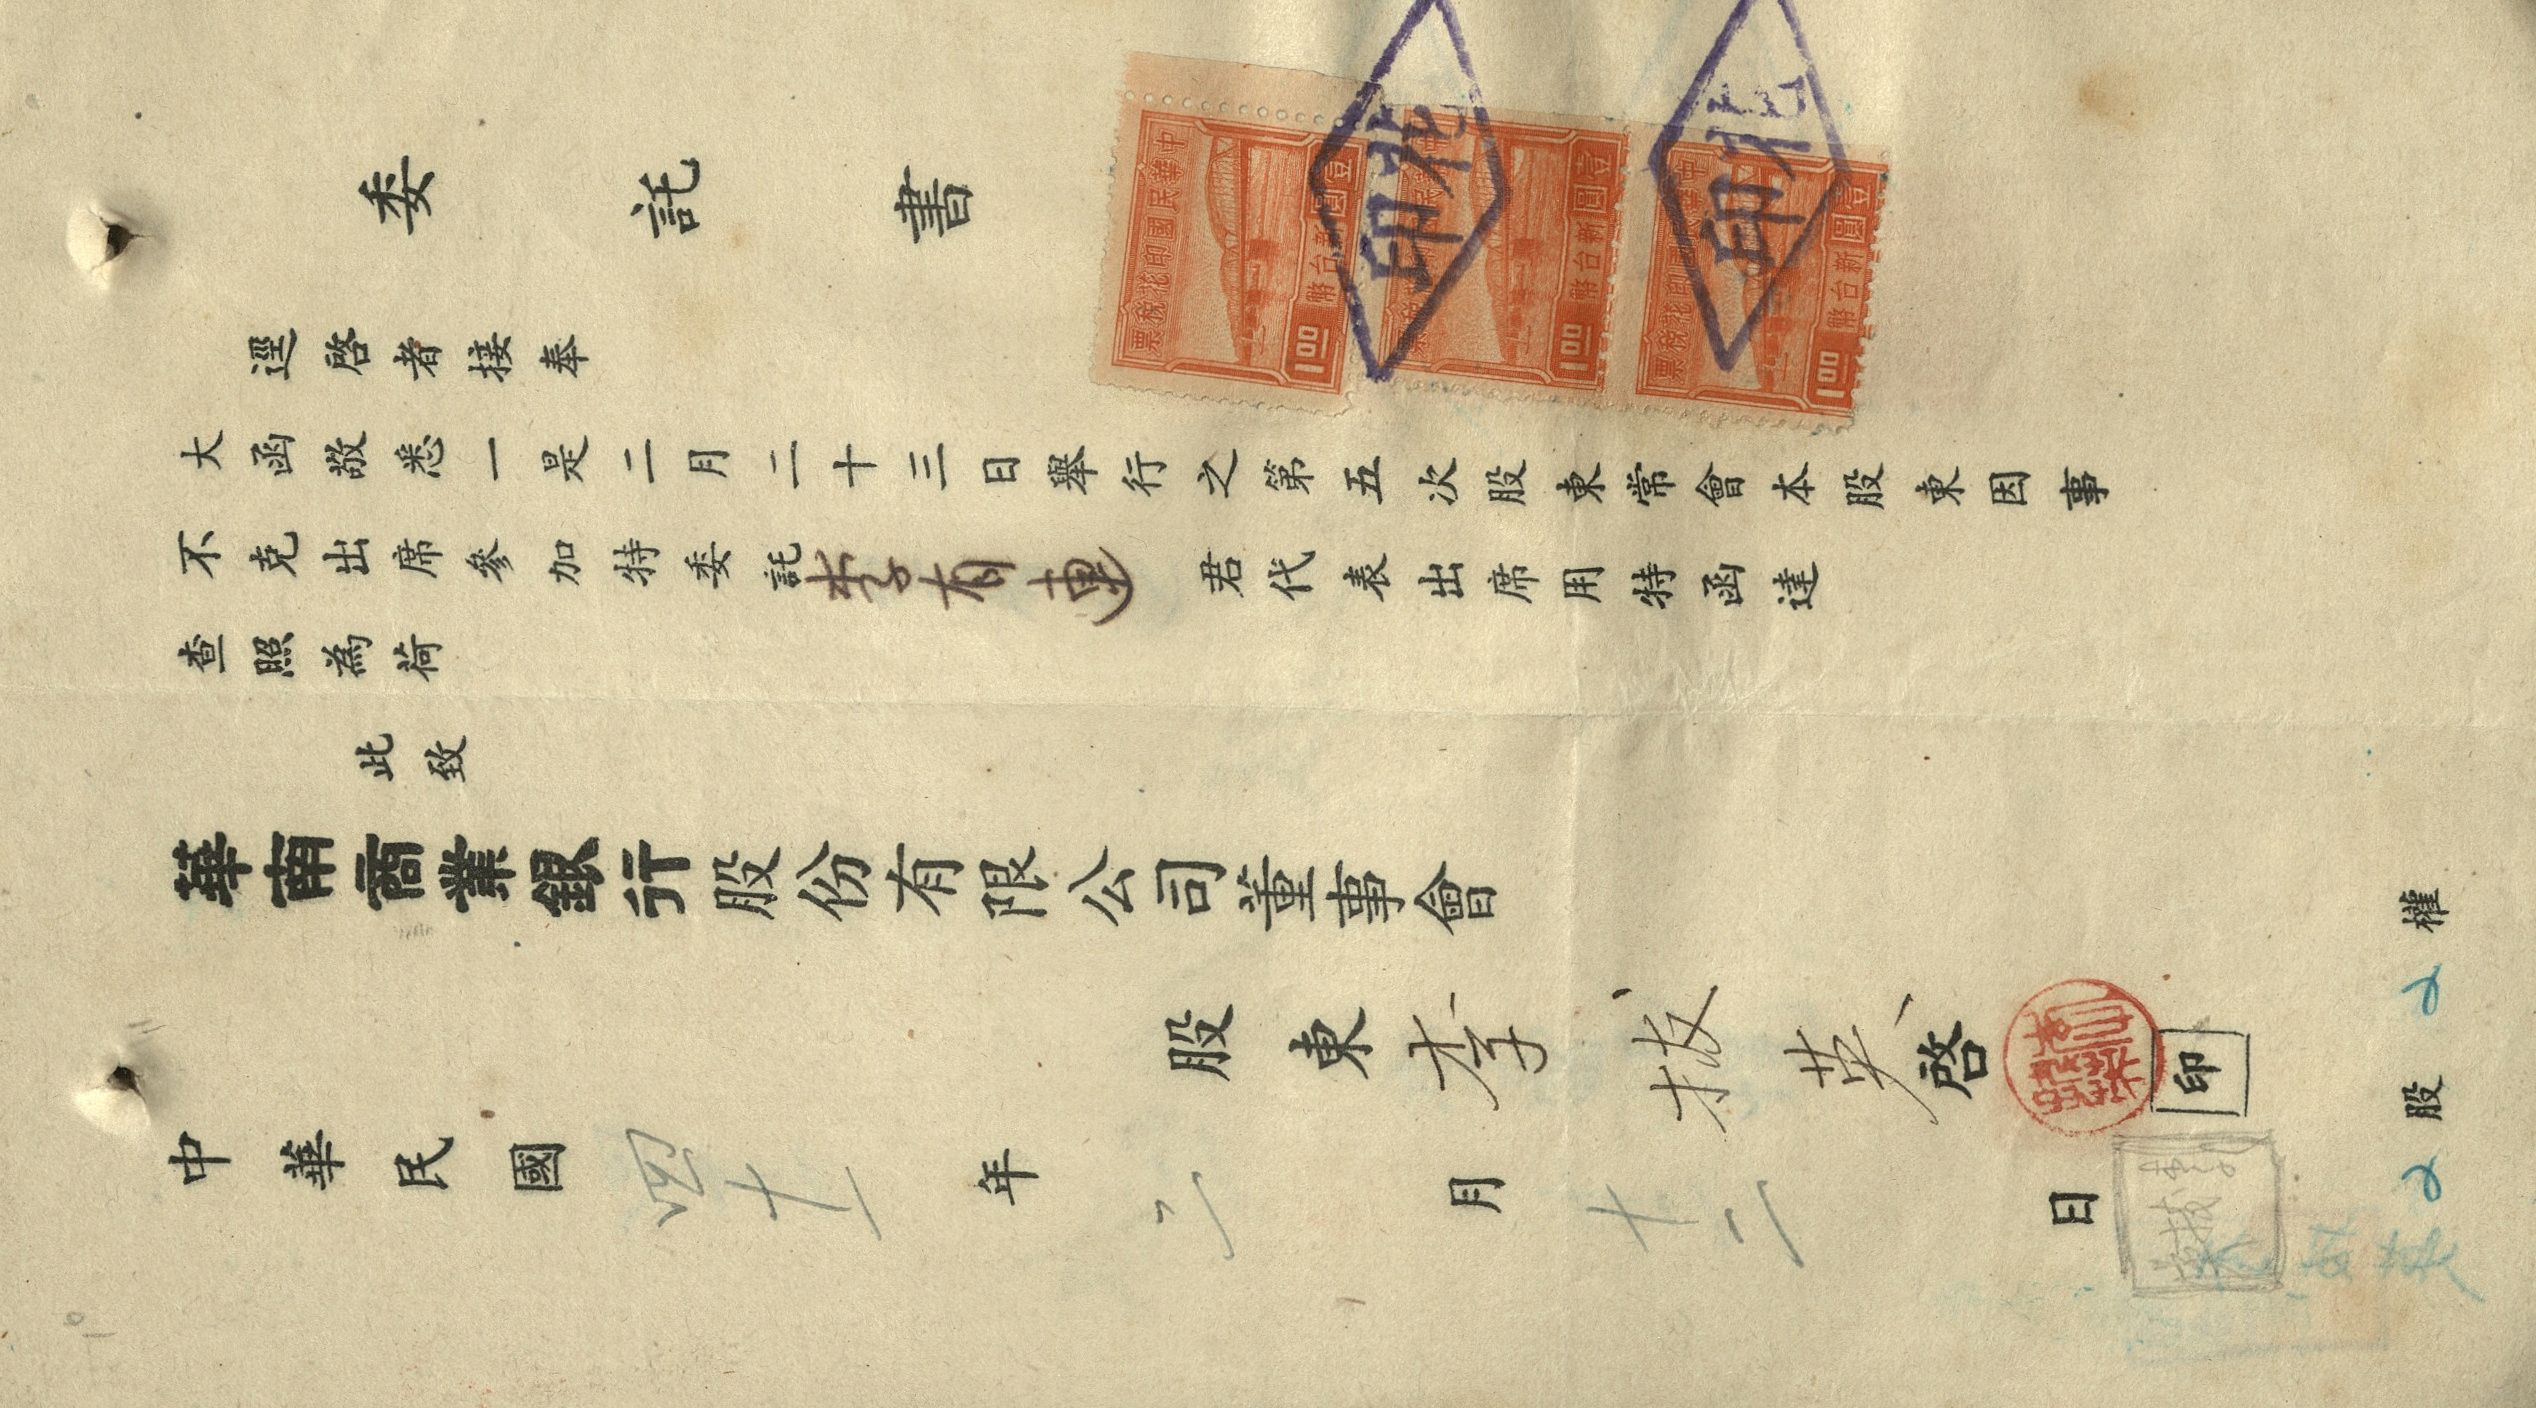 委託書
逕啓者接奉
大函敬悉一是二月二十三日舉行之第五次股東常會本股東因事
不克出席參加特委託李有連君代表出席用特函達
查照為荷
此致
華南商業銀行股份有限公司董事會
股東李拔英啓
印
中華民國四十一年二月十二日
權2股2
中華民國印花稅票
壹圓新台幣
1.00
中華民國印花稅票
壹圓新台幣
1.00
中華民國印花稅票
壹圓新台幣
1.00
北印
北印